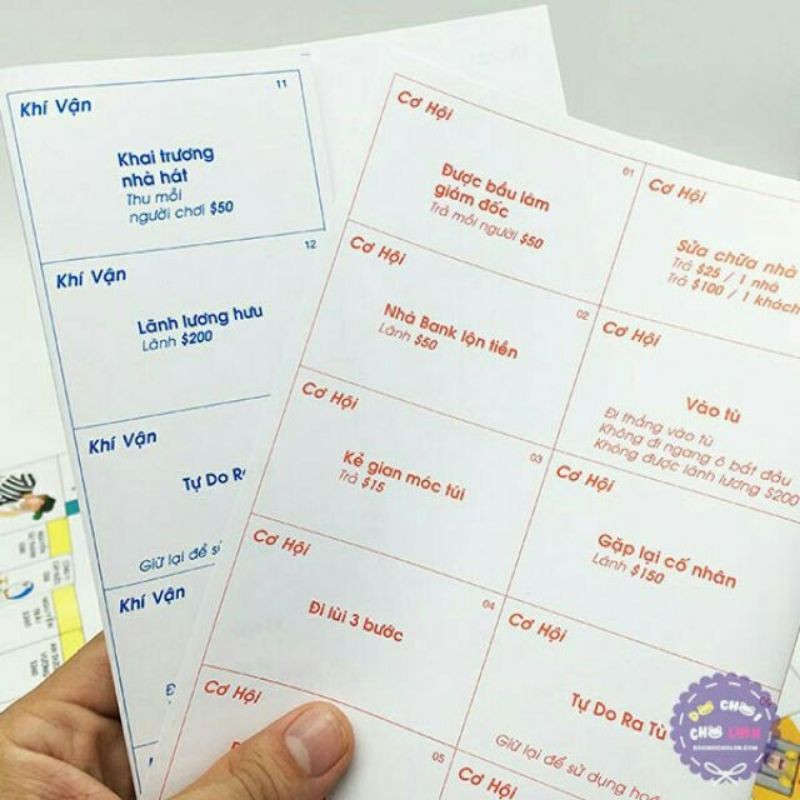 Khí Vận
11
Khai trương
nhà hát
Thu mỗi
người chơi $50
Khí Vận
12
Lãnh lương hưu
Lãnh $200
Khí Vận
Tự Do
Giữ lại để
Khí Vận
Cơ Hội
01
Được bầu làm
giám đốc
Trả mỗi người $50
Cơ Hội
02
Nhà Bank lộn tiền
Lãnh $50
Cơ Hội
03
Kẻ gian móc túi
Trả $15
Cơ Hội
04
Đi lùi 3 bước
Cơ Hội
05
Cơ Hội
Sửa chữa nhà
Trả $25 / 1 nhà
Trả $100 / 1 khách
Cơ Hội
Vào tù
Đi thẳng vào tù
Không đi ngang ô bắt đầu
Không được lãnh lương $200
Cơ Hội
Gặp lại cố nhân
Lãnh $150
Cơ Hội
Tự Do Ra Tù
Giữ lại để sử dụng hoặ
Cơ Hội